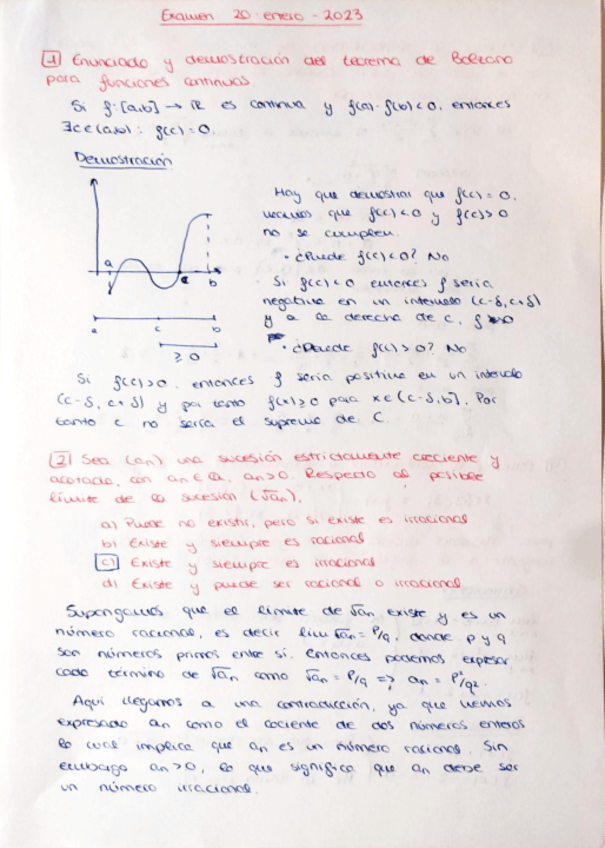 Examen 20 - enero - 2023
1 Enunciado y demostración del teorema de Bolzano
para funciones continuas
Si f: [a,b] → ℝ es continua y f(a)·f(b)<0, entonces
∃c∈(a,b) : f(c)=0.
Demostración
Hay que demostrar que f(c) = 0,
veamos que f(c)<0 y f(c)>0
no se cumplen.
• ¿Puede f(c)<0? No
Si f(c)<0 entonces f sería
negativa en un intervalo (c-δ, c+δ)
y a la derecha de c, f
• ¿Puede f(c)>0? No
a
c
b
a
c
b
≥ 0
Si f(c)>0, entonces f sería positiva en un intervalo
(c-δ, c+δ) y por tanto f(x)≥0 para x∈(c-δ,b]. Por
tanto c no sería el supremo de C.
2 Sea (an) una sucesión estrictamente creciente y
acotada, con an ∈ Q, an>0. Respecto al posible
límite de la sucesión (√an),
a) Puede no existir, pero si existe es irracional
b) Existe y siempre es racional
c) Existe y siempre es irracional
d) Existe y puede ser racional o irracional
Supongamos que el límite de √an existe y es un
número racional, es decir lim √an = P/q, donde p y q
son números primos entre si. Entonces podemos expresar
cada término de √an como √an = P/q => an = P²/q².
Aquí llegamos a una contradicción, ya que hemos
expresado an como el cociente de dos números enteros
lo cual implica que an es un número racional. Sin
embargo an>0, lo que significa que an debe ser
un número irracional.